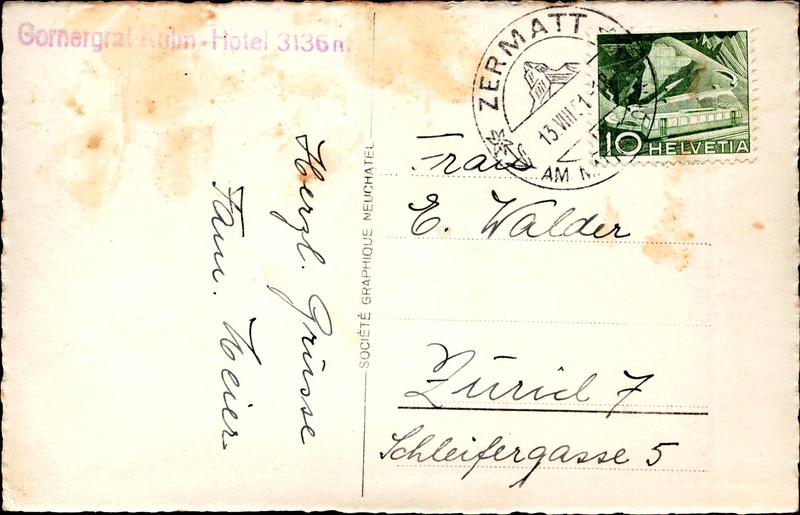 Gornergrat Kulm-Hotel 3136 m.
Herzl. Grüsse
Fam. Meier
SOCIÉTÉ GRAPHIQUE NEUCHATEL
ZERMATT
13.VIII.51
AM
10 HELVETIA
Frau
E. Walder
Zürich 7
Schleifergasse 5